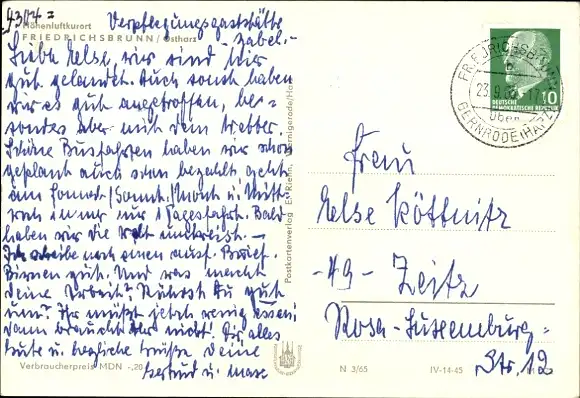 4304 =
Verpflegungsgaststätte
Zabel.-
Höhenluftkurort
FRIEDRICHSBRUNN/Ostharz
Liebe Else, wir sind hier
gut gelandet. Auch sonst haben
wir es gut angetroffen, be-
sonders aber mit dem Wetter.
Schöne Busfahrten haben wir schon
geplant auch schon bezahlt, geht
am Sonnab./Sonnt./Mont. u. Mitt-
woch immer nur 1 Tagesfahrt. Bald
haben wir die Welt umkreist. —
Ich schreibe noch einen ausf. Brief.
Birnen gut. Und was macht
Deine Arbeit? Ruhest Du gut
Ihr müßt jetzt wenig essen,
dann braucht Ihr nicht! Dir alles
Gute u. herzliche Grüße, Deine
Gertrud u. Max
Verbraucherpreis MDN -,20
Postkartenverlag E. Riehn, Wernigerode/Harz
DEUTSCHE
DEMOKRATISCHE REPUBLIK
10
FRIEDRICHSBRUNN
23.9.
über
GERNRODE (HARZ)
Frau
Else Köttnitz
-49- Zeitz
Rosa-Luxemburg-
Str. 12
N 3/65 IV-14-45